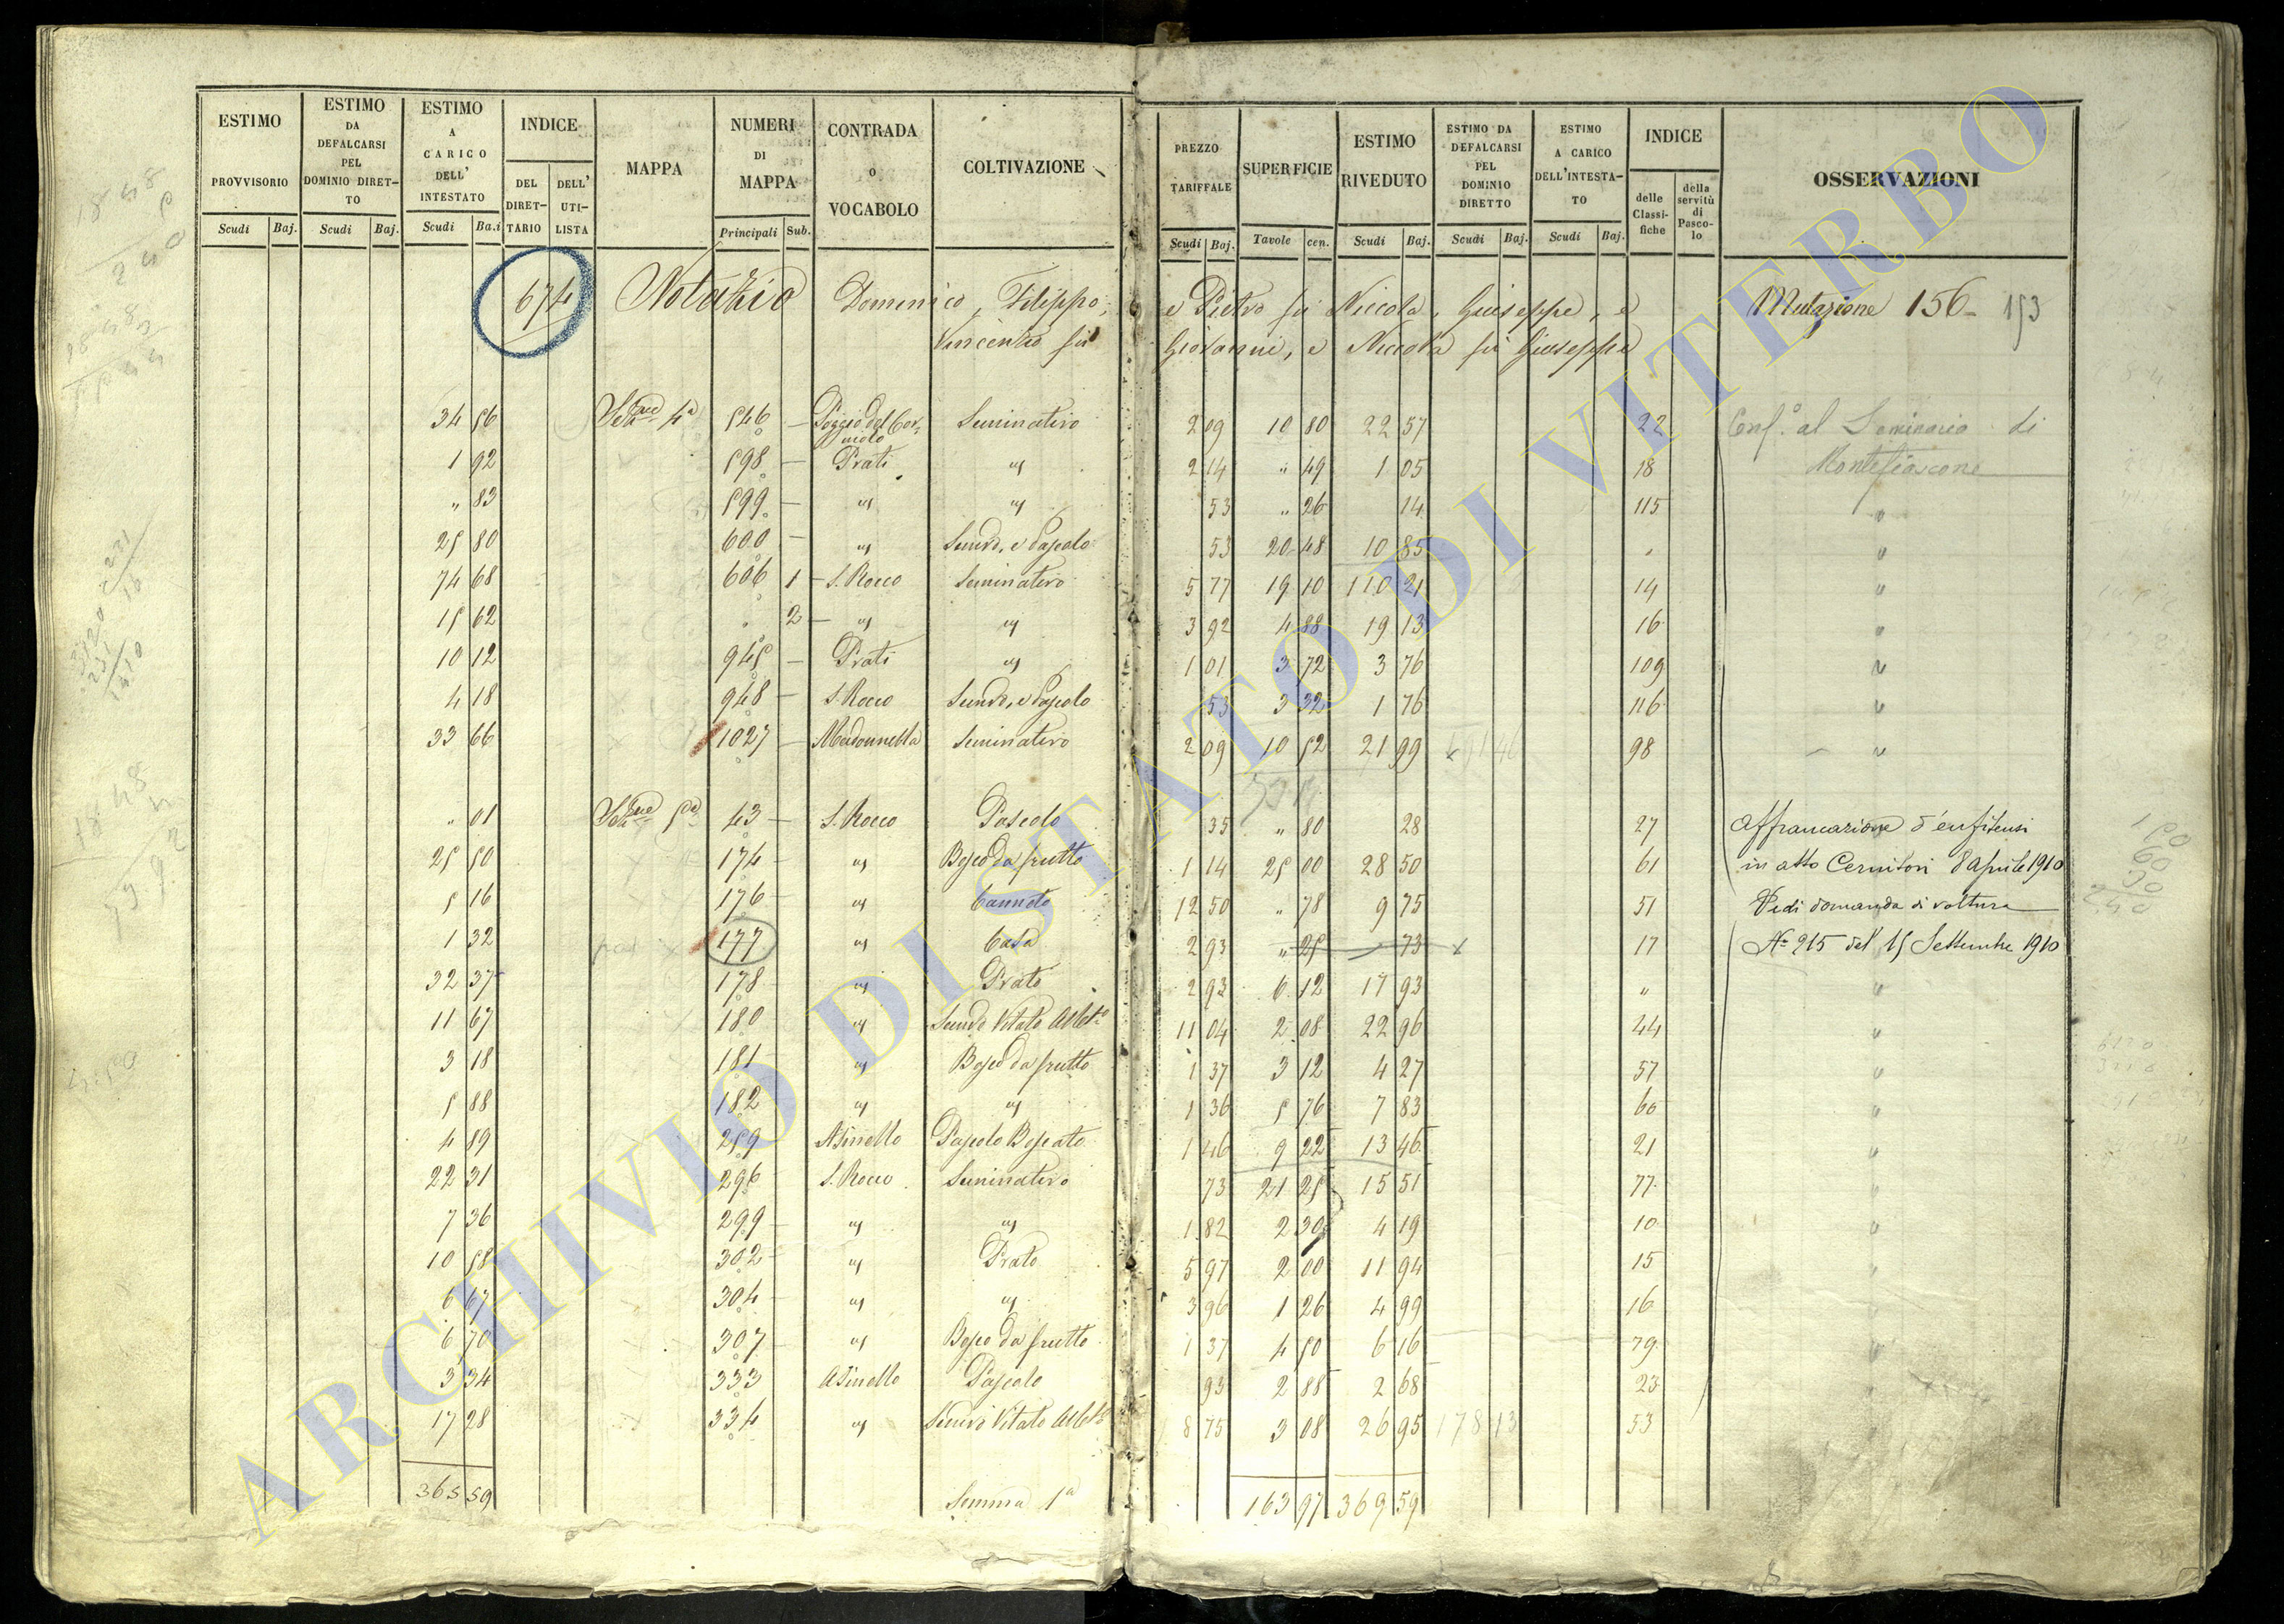 ESTIMO PROVVISORIO
ESTIMO DA DEFALCARSI PEL DOMINIO DIRET-TO
ESTIMO A CARICO DELL' INTESTATO
INDICE
DEL DIRET-TARIO
DELL' UTI-LISTA
MAPPA
NUMERI DI MAPPA
CONTRADA O VOCABOLO
COLTIVAZIONE
PREZZO TARIFFALE
SUPERFICIE
ESTIMO RIVEDUTO
ESTIMO DA DEFALCARSI PEL DOMINIO DIRETTO
ESTIMO A CARICO DELL'INTESTA-TO
INDICE
delle Classi-fiche
della servitù di Pasco-lo
OSSERVAZIONI
Scudi Baj. Scudi Baj. Scudi Ba.i Principali Sub. Scudi Baj. Tavole cen. Scudi Baj. Scudi Baj. Scudi Baj.
674 Notazio Domenico, Filippo, e Pietro fu Niccola, Giuseppe, e Mutazione 156 - 153
Vincenzo fu Giovanni, e Niccola fu Giuseppe
34 56 4a 546 - Poggio del Cor- Seminativo 2 09 10 80 22 57 22 Conf.o al Seminario di
1 92 598 - Prati " 2 14 " 49 1 05 18 Montefiascone
" 83 599 - " " 53 " 26 14 115 "
25 80 600 - " Semvo, e Pascolo 53 20 48 10 85 "
74 68 606 1 - S. Rocco Seminativo 5 77 19 10 110 21 14 "
15 62 2 - " " 3 92 4 88 19 13 16 "
10 12 945 - Prati " 1 01 3 72 3 76 109 "
4 18 948 - S. Rocco Semvo, e Pascolo 53 3 32 1 76 116 "
33 66 1027 - Madonnella Seminativo 2 09 10 52 21 99 98 "
" 01 5a 43 - S. Rocco Pascolo 35 " 80 28 27 Affrancazione d'enfiteusi
25 50 174 - " Bosco da frutto 1 14 25 00 28 50 61 in atto Cernitori 8 Aprile 1910
5 16 176 - " Canneto 12 50 " 78 9 75 51 Vedi domanda di voltura
1 32 177 " Casa 2 93 " 25 73 x 17 No 215 del 15 Settembre 1910
32 37 178 " Prato 2 93 6 12 17 93 " "
11 67 180 " Semvo Vitato Albto 11 04 2 08 22 96 44 "
3 18 181 " Bosco da frutto 1 37 3 12 4 27 57 "
5 88 182 " " 1 36 5 76 7 83 60 "
4 89 259 Asinello Pascolo Boscato 1 46 9 22 13 46 21 "
22 31 296 S. Rocco Seminativo 73 21 25 15 51 77 "
7 36 299 - " " 1 82 2 30 4 19 10 "
10 58 302 - " Prato 5 97 2 00 11 94 15
6 67 304 - " " 3 96 1 26 4 99 16
6 70 307 - " Bosco da frutto 1 37 4 50 6 16 79
3 34 333 Asinello Pascolo 93 2 88 2 68 23
17 28 334 " Semvo Vitato Albto 8 75 3 08 26 95 178 13 53
365 59 Somma 1a 163 97 369 59
ARCHIVIO DI STATO DI VITERBO